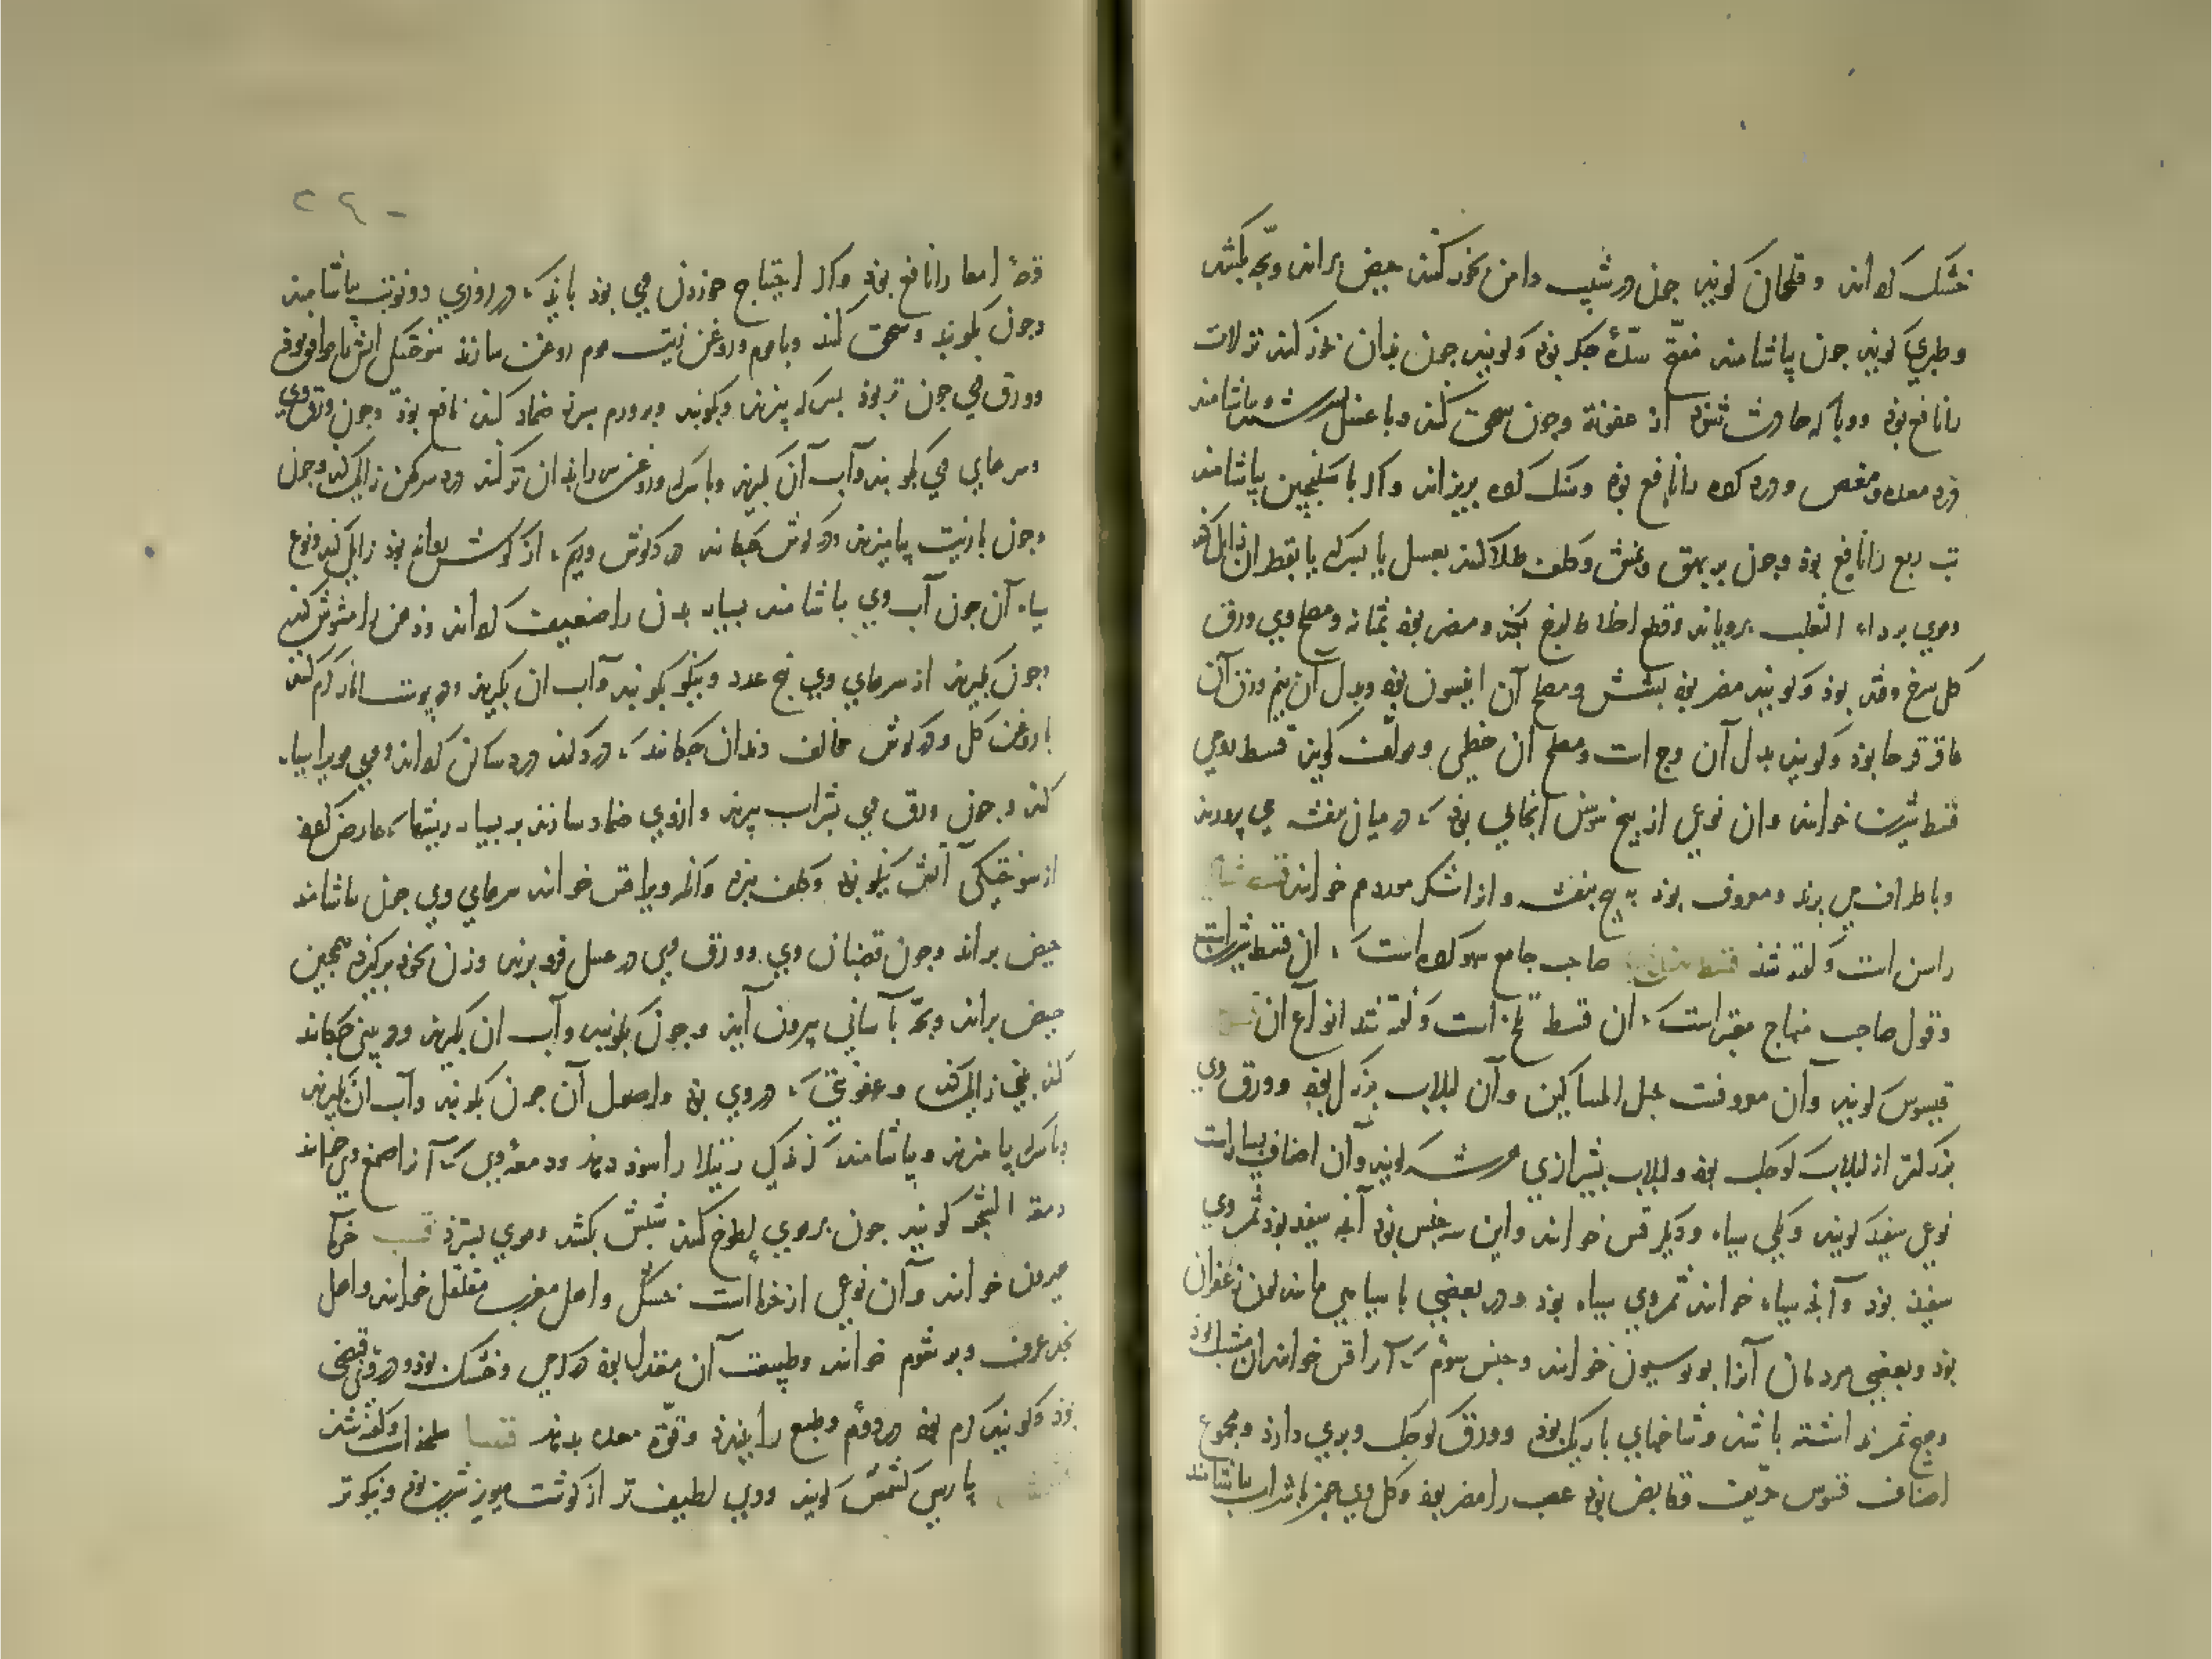 خشک کرداند و قلحان کویند چون در شیب دامن بخور کنند حیض براند و بچه بکشد
و طبری کوید چون بیاشامند مفتح سدّهٔ جکر بود و کویند چون بدان بخور کنند نزلات
را نافع بود و وبا که حادث شود از عفونة و چون سحق کنند و با عسل بسرشند و بیاشامند
درد معده و مغص و درد کرده را نافع بود و سنک کرده بریزاند و اکر با سکنجبین بیاشامند
تب ربع را نافع بود و چون بر بهق و نمش و کلف طلا کنند بعسل یا بسرکه یا بقطران زایل کند
و موی بر داء الثعلب برویاند و قطع اخلاط لزج بکند و مضر بود بمثانه و مصلح وی ورق
کل سرخ و قند بود و کویند مضر بود بشش و مصلح آن انیسون بود و بدل آن نیم وزن آن
عاقرقرحا بود و کویند بدل آن وج است و مصلح آن خطمی و مولف کوید قسط رومی
قسط شیرین خوانند و آن نوعی از بیخ سوسن آسمانجونی بود که در میان بنفشه می پرورند
و باطراف می برند و معروف بود به بیخ بنفشه و از لشکر مردم خوانند قسط شامی
راسن است و کفته شد صاحب جامع سهو کرده است که آن قسط شیرین است
و قول صاحب منهاج معتبر است که آن قسط تلخ است و کفته شد انواع آن
قیسوس کویند و آن معروفست بحبل المساکین و آن لبلاب بزرک بود و ورق وی
بزرکتر از لبلاب کوچک بود و لبلاب بشیرازی سرشه کویند و آن اصناف بسیار است
نوعی سفید کویند و یکی سیاه و دیکر قسس خوانند و این سه جنس بود آنچه سفید بود ثمر وی
سفید بود و آنچه سیاه خوانند ثمر وی سیاه بود و در بعضی با سیاهی ماند بلون زعفران
بود و بعضی مردمان آنرا بونوسیون خوانند و جنس سوم که آنرا قسس خوانند آن مشبک بود
و هیچ ثمر نداشته باشد و شاخهای باریک بود و ورق کوچک و بری دارد و مجموع
اصناف قسوس حریف و قابض بود عصب را مضر بود و کل وی چون با شراب بیاشامند
۲۶۰
قرحهٔ امعا را نافع بود و اکر احتیاج خوردن وی بود باید که در روزی دو نوبت بیاشامند
و چون بکویند و سحق کنند و با موم و روغن زیت موم روغن سازند سوختکی آتش را موافق بود
و ورق وی چون تر بود بسرکه بپزند و بکویند و بر ورم سپرز ضماد کنند نافع بود و چون ورق وی
و سرهای وی بکویند و آب آن بکیرند و با سرکه و روغن کل سر را بدان تر کنند درد سر کهن زایل کند و چون
و چون با زیت بیامیزند و در کوش چکانند درد کوش و ریم که از کوش روانه بود زایل کند و نوع
سیاه آن چون آب وی بیاشامند بسیار بدن را ضعیف کرداند و ذهن را مشوش کند
و چون بکیرند از سرهای وی پنج عدد و نیکو بکویند و آب آن بکیرند و در پوست انار کرم کنند
با روغن کل و در کوش مخالف دندان چکانند که درد کند درد ساکن کرداند و وی مویرا سیاه
کند و چون ورق وی بشراب بپزند و از وی ضماد سازند بر بسیار ریشها که عارض کردد
از سوختکی آتش نیکو بود و کلف ببرد و آنکه ویرا قسس خوانند سرهای وی چون بیاشامند
حیض براند و چون قضبان وی و ورق وی در عسل فرو برند و زن بخود برکیرد همچنین
حیض براند و بچه بآسانی بیرون آید و چون بکویند و آب آن بکیرند و در بینی چکانند
کند بینی زایل کند و عفونتی که در وی بود و اصول آن چون بکویند و آب آن بکیرند
و با سرکه بیامیزند و بیاشامند کزیدکی رتیلا را سود دهد و دمعهٔ وی که آنرا صمغ وی خوانند
دمعة الشجر کویند چون بر موی لطوخ کنند شپش بکشد و موی بسترد قسب خرما
هیرون خوانند و آن نوعی از خرما است خشک و اهل مغرب مقلقل خوانند و اهل
نجد عرف و برشوم خوانند و طبیعت آن معتدل بود در کرمی و خشک بود و در وی قبضی
بود و کویند کرم بود در دوم و طبع را ببندد و قوّة معده بدهد و کفته شد
پارسی کشمش کویند و وی لطیف تر از کوشت مویز شیرین بود و نیکوتر